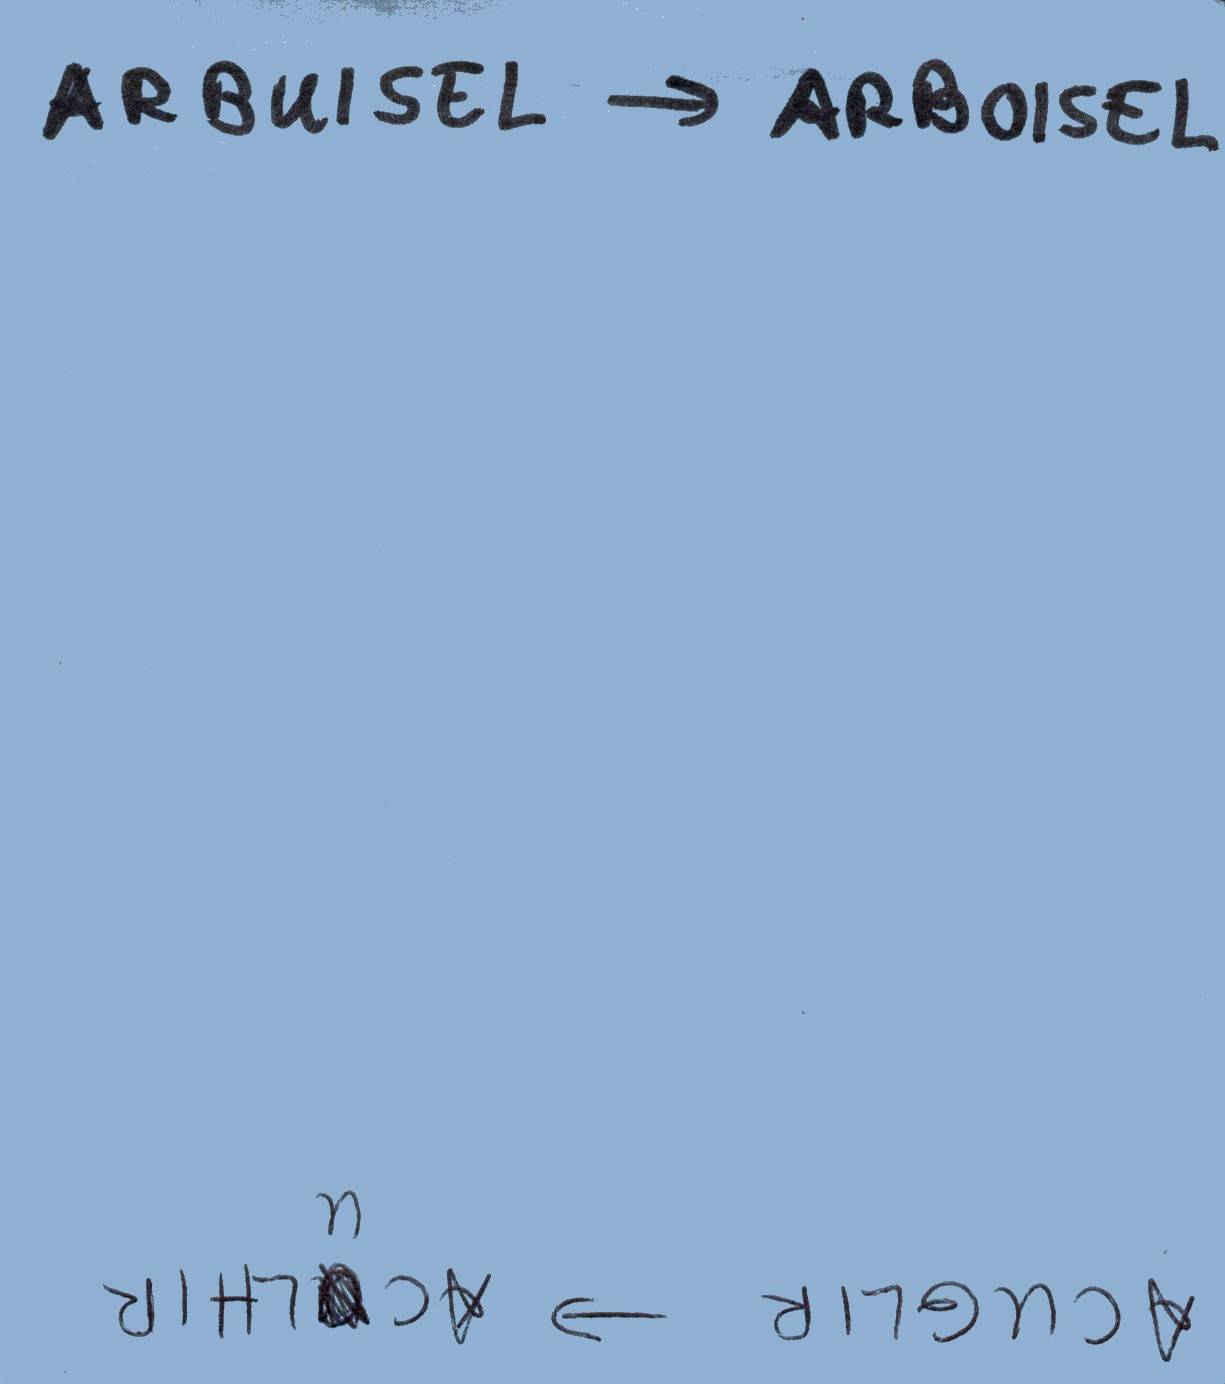 ARBUISEL → ARBOISEL
ACUGLIR → ACLHIR
u